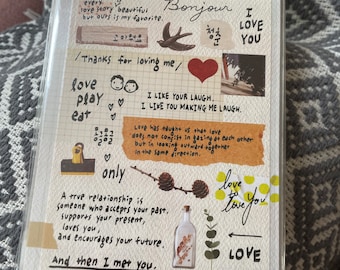 every
love story beautiful
but ours is my favorite.
Bonjour
I
LOVE
YOU
청춘
/ Thanks for loving me /
love
play
eat
I LIKE YOUR LAUGH.
I LIKE YOU MAKING ME LAUGH.
Love has taught us that love
does not consist in gazing at each other
but in looking outward together
in the same direction.
only
love
to
love you
A true relationship is
someone who accepts your past,
supports your present,
loves you,
and encourages your future.
LOVE
And then I met you.